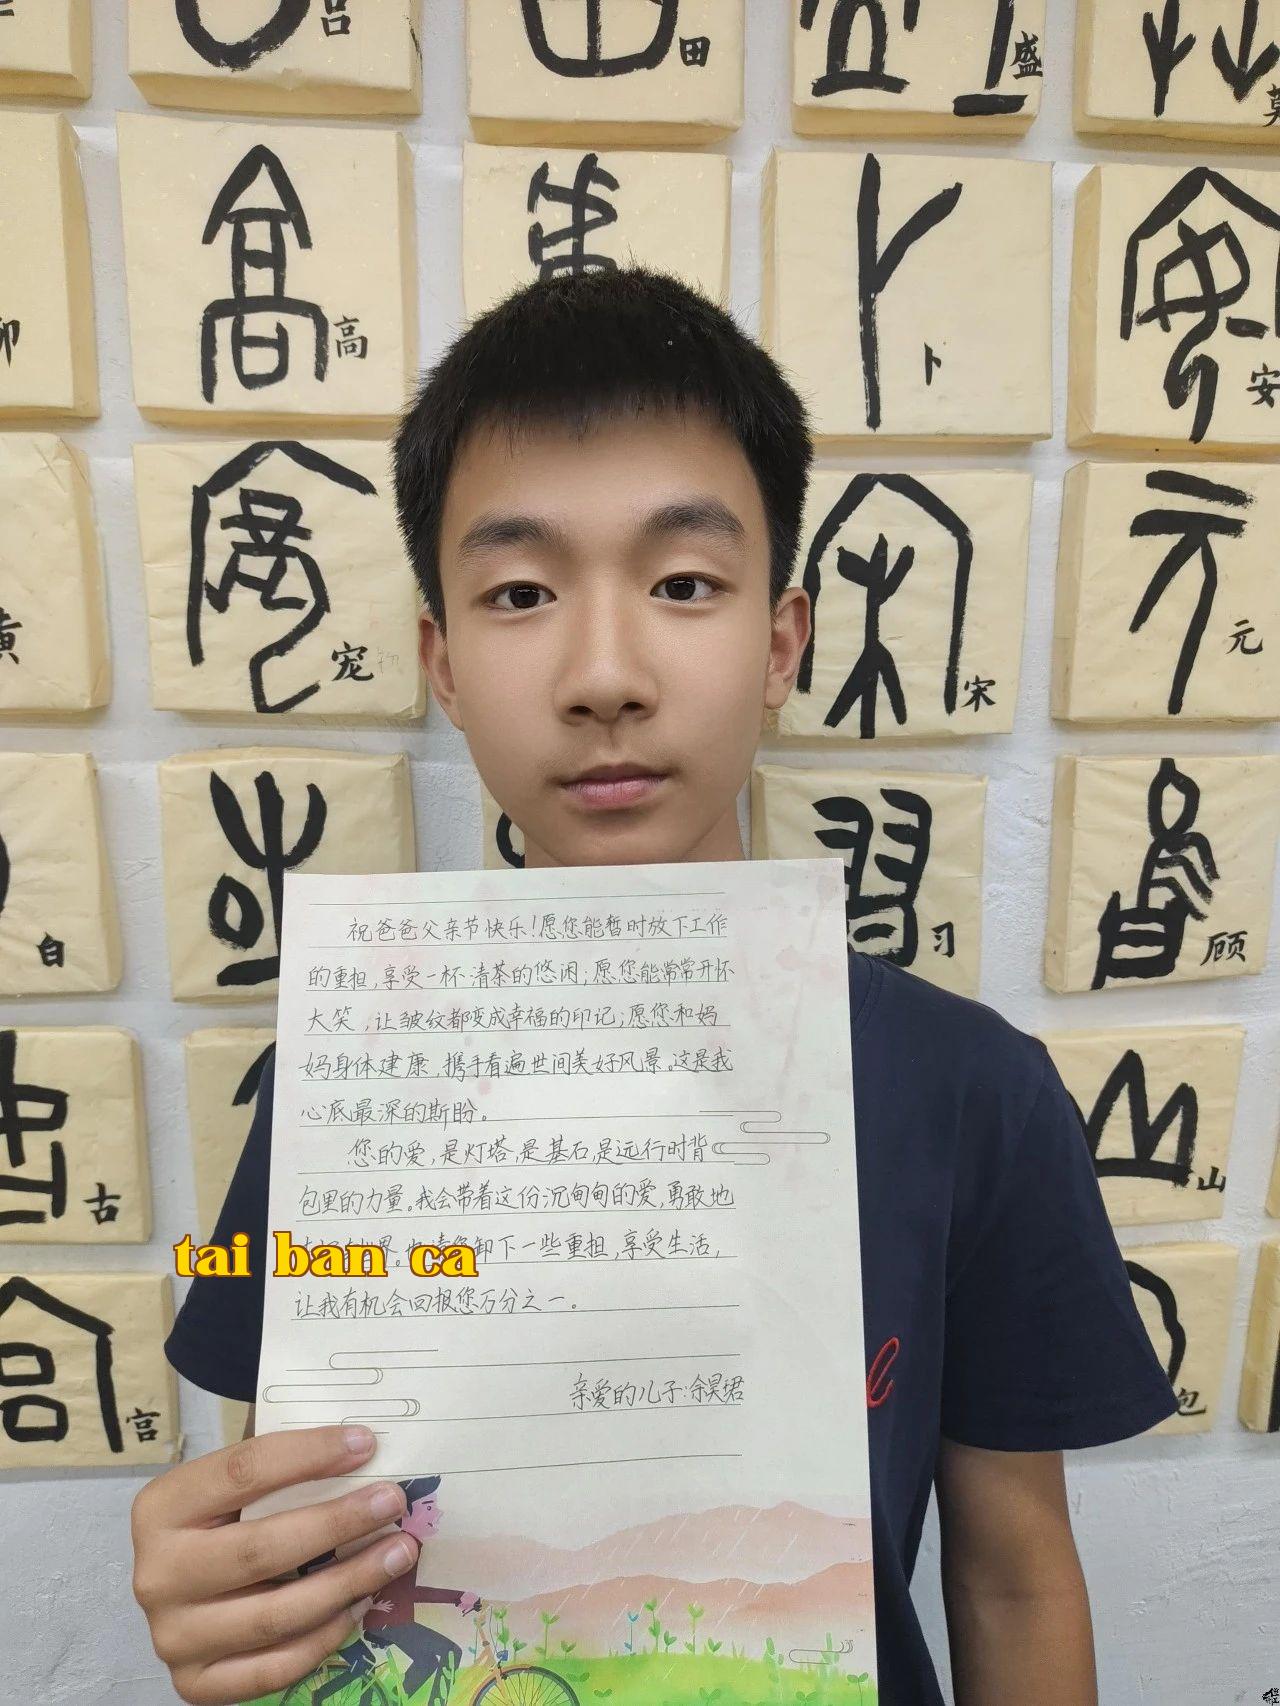 吕
田
盛
莫
卯
高
卜
安
黄
宠
宋
元
白
习
顾
古
山
宫
包
祝爸爸父亲节快乐!愿您能暂时放下工作
的重担,享受一杯清茶的悠闲;愿您能常常开怀
大笑,让皱纹都变成幸福的印记;愿您和妈
妈身体建康,携手看遍世间美好风景。这是我
心底最深的斯盼。
您的爱,是灯塔,是基石,是远行时背
包里的力量。我会带着这份沉甸甸的爱,勇敢地
界。也请您卸下一些重担,享受生活,
让我有机会回报您万分之一。
亲爱的儿子:余昊珺
tai ban ca